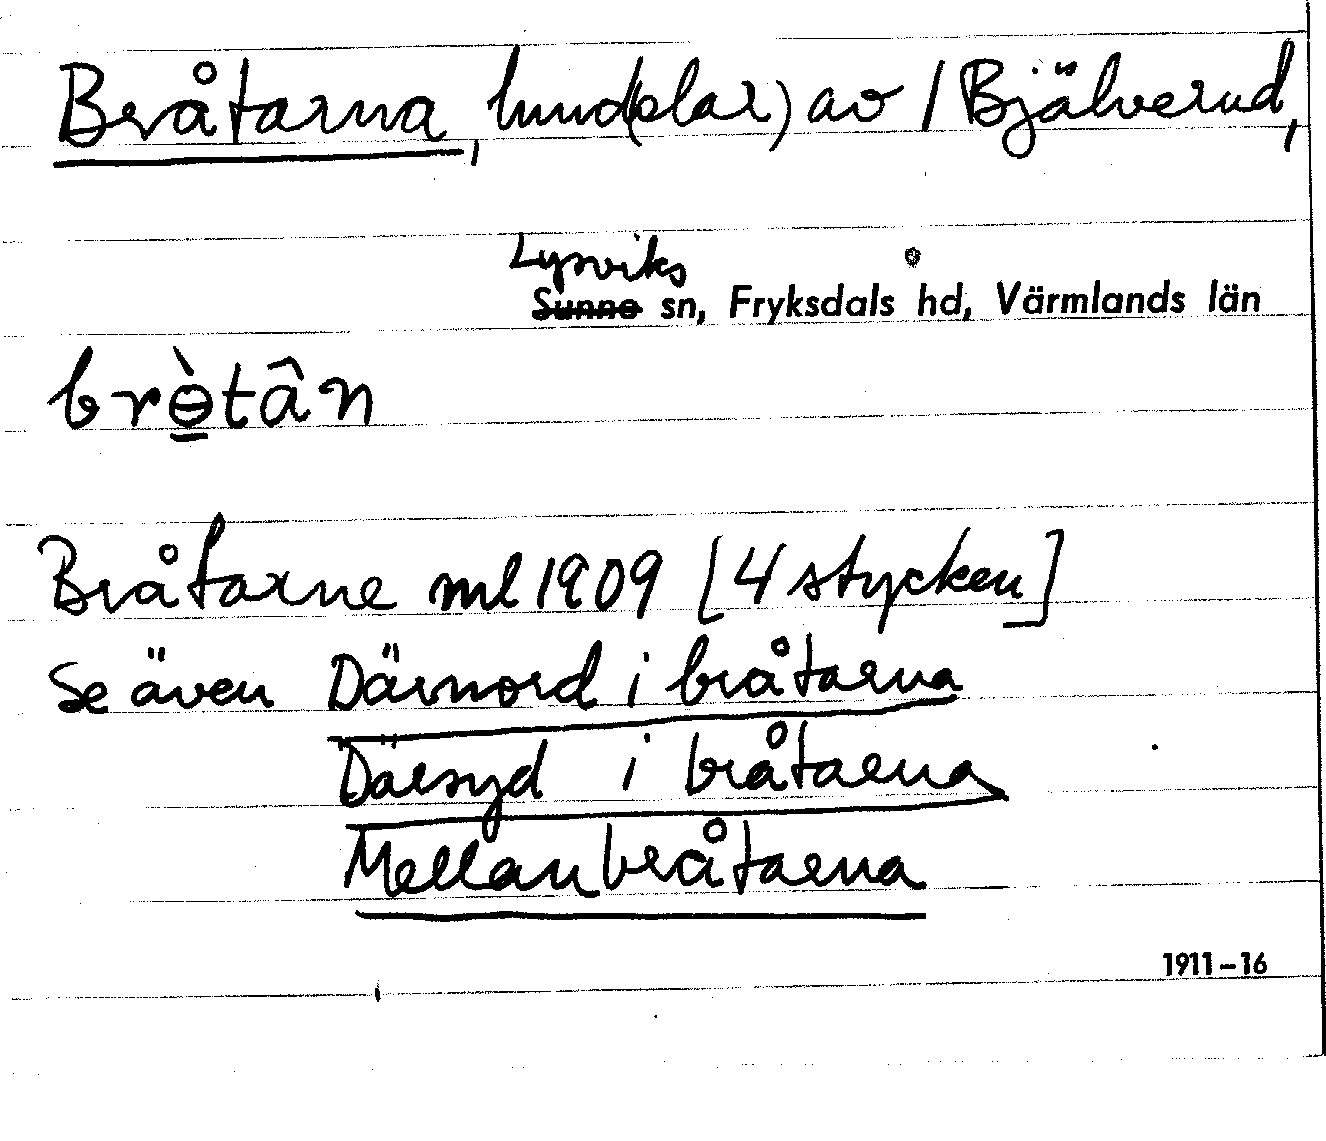 Bråtarna, hmd(elar) av / Bjälverud,
Lysviks
Sunne sn, Fryksdals hd, Värmlands län
brɵ̀tân
Bråtarne ml 1909 [4 stycken]
Se även Därnord i bråtarna
Därsyd i bråtarna
Mellanbråtarna
1911–16